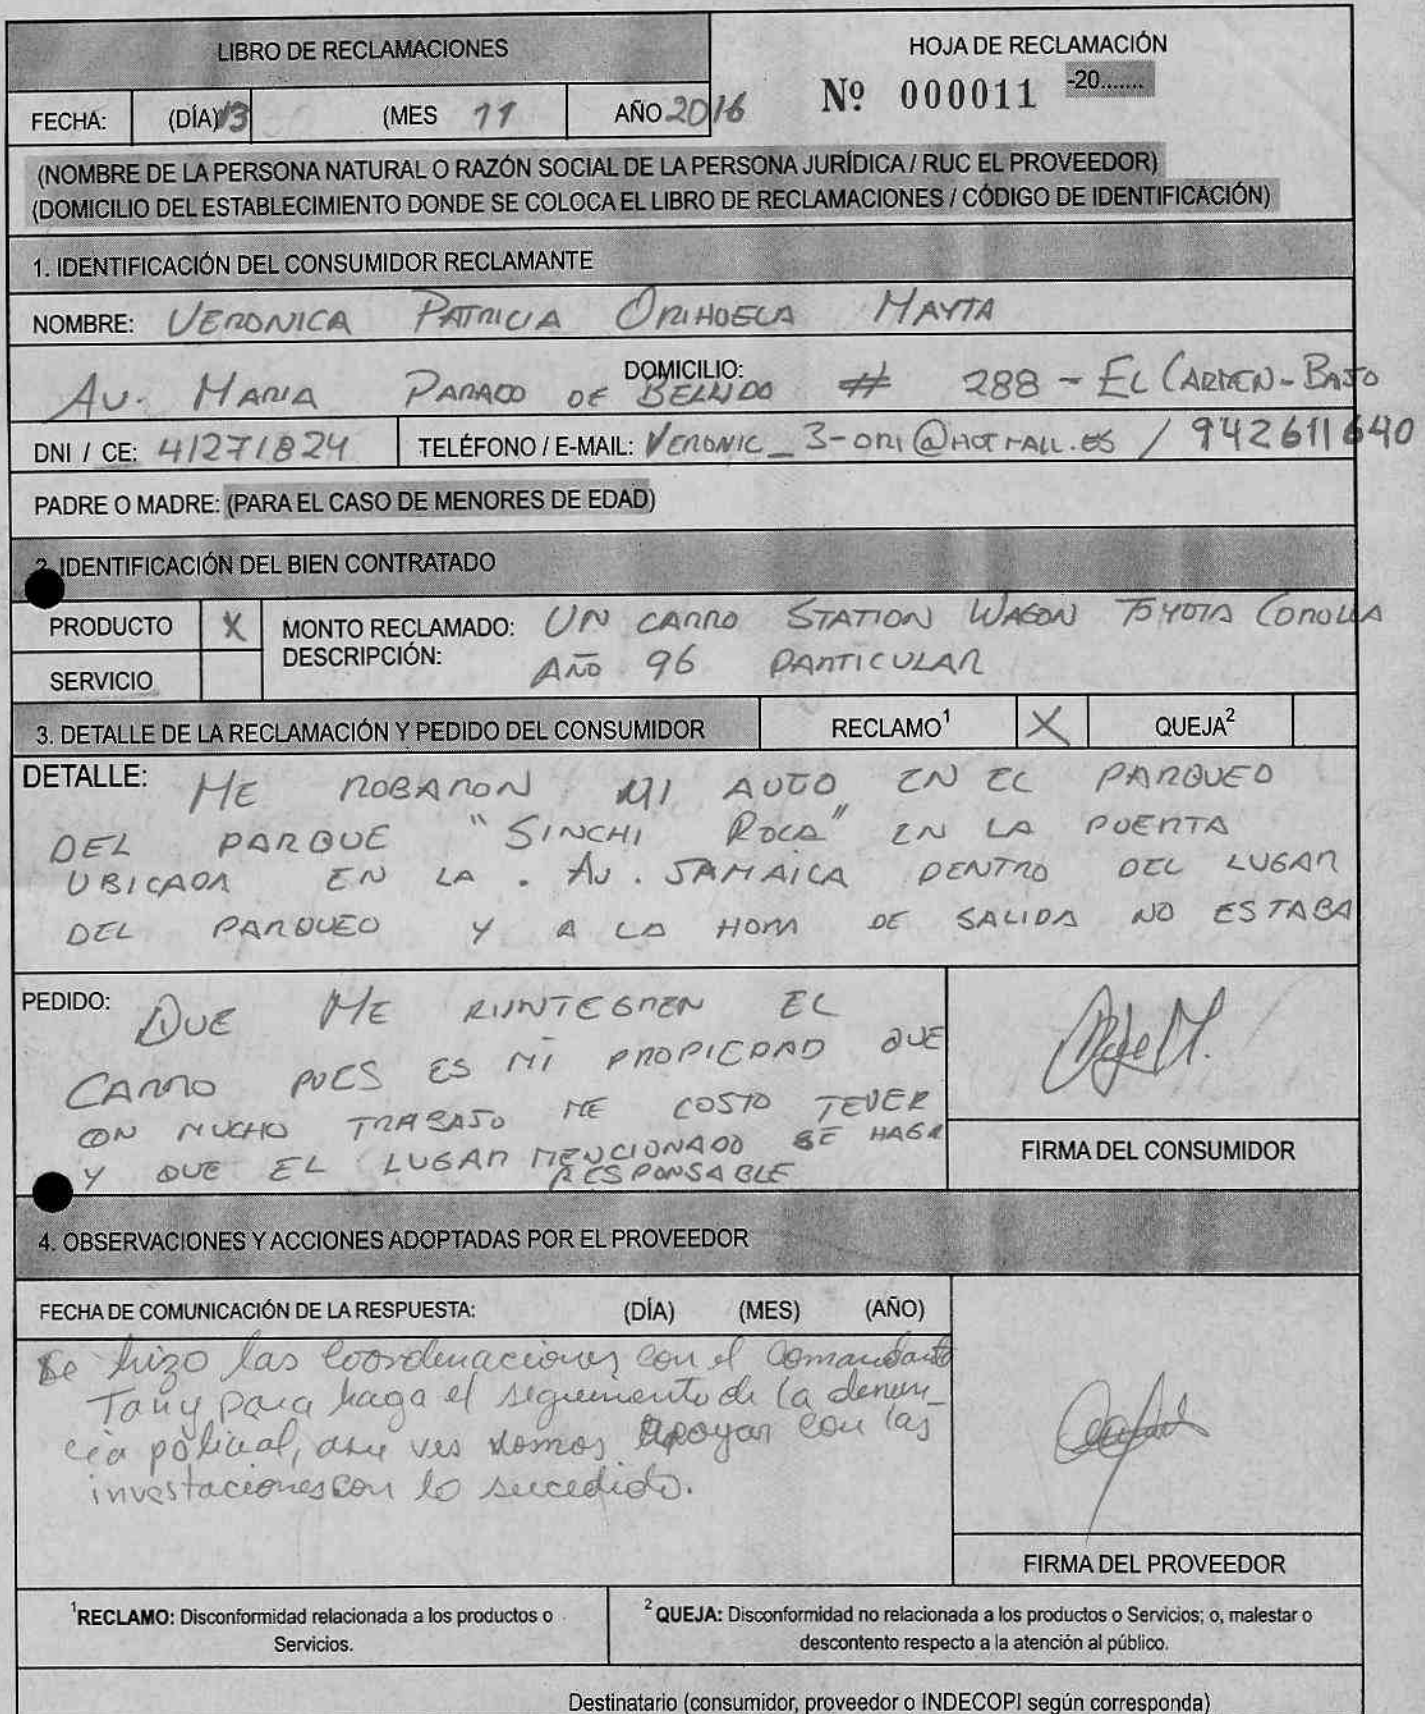 LIBRO DE RECLAMACIONES
HOJA DE RECLAMACIÓN
Nº 000011 -20.......
FECHA: (DÍA) 13 (MES 11 AÑO 2016
(NOMBRE DE LA PERSONA NATURAL O RAZÓN SOCIAL DE LA PERSONA JURÍDICA / RUC EL PROVEEDOR)
(DOMICILIO DEL ESTABLECIMIENTO DONDE SE COLOCA EL LIBRO DE RECLAMACIONES / CÓDIGO DE IDENTIFICACIÓN)
1. IDENTIFICACIÓN DEL CONSUMIDOR RECLAMANTE
NOMBRE: VERONICA PATRICIA ORIHUELA MAYTA
DOMICILIO:
AV. MARIA PARADO DE BELLIDO # 288 - EL CARMEN - BAJO
DNI / CE: 41271824 TELÉFONO / E-MAIL: VERONIC_3-ORI@HOTMAIL.ES / 942611640
PADRE O MADRE: (PARA EL CASO DE MENORES DE EDAD)
2. IDENTIFICACIÓN DEL BIEN CONTRATADO
PRODUCTO X MONTO RECLAMADO: UN CARRO STATION WAGON TOYOTA COROLLA
SERVICIO DESCRIPCIÓN: AÑO 96 PARTICULAR
3. DETALLE DE LA RECLAMACIÓN Y PEDIDO DEL CONSUMIDOR RECLAMO¹ X QUEJA²
DETALLE: ME ROBARON MI AUTO EN EL PARQUEO
DEL PARQUE "SINCHI ROCA" EN LA PUERTA
UBICADA EN LA . AV. JAMAICA DENTRO DEL LUGAR
DEL PARQUEO Y A LA HORA DE SALIDA NO ESTABA
PEDIDO: QUE ME RIINTEGREN EL
CARRO PUES ES MI PROPIEDAD QUE
CON MUCHO TRABAJO ME COSTO TENER
Y QUE EL LUGAR MENCIONADO SE HAGA
RESPONSABLE
FIRMA DEL CONSUMIDOR
4. OBSERVACIONES Y ACCIONES ADOPTADAS POR EL PROVEEDOR
FECHA DE COMUNICACIÓN DE LA RESPUESTA: (DÍA) (MES) (AÑO)
Se hizo las coordenaciones con el Comandante
Tany para haga el seguemento de la denun-
cia policial, asu ves somos apoyar con las
investaciones con lo sucedido.
FIRMA DEL PROVEEDOR
¹RECLAMO: Disconformidad relacionada a los productos o
Servicios.
² QUEJA: Disconformidad no relacionada a los productos o Servicios; o, malestar o
descontento respecto a la atención al público.
Destinatario (consumidor, proveedor o INDECOPI según corresponda)